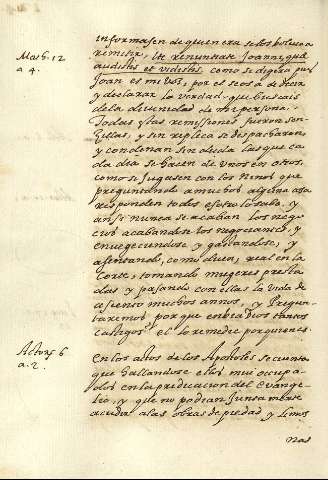 informasen de quien era se los bolvio a
Math. 12
remitir, Ite renuntiate Joanni, quæ
a 4.
audistis et vidistis, como se digera pues
Joan es mi vos, por el se os a de decir
y declarar la verdad, que buscais
de la divinidad de mi persona.
Todas estas remisiones fueron sen-
zillas, y sin replica se despacharon
y condenan sin duda las que ca
da dia se hacen de unos en otros,
como si jugasen con los niños que
preguntando a muchos alguna cosa
responden todos esotro lo sabe. y
ansi nunca se acaban los nego
cios acabandose los negociantes, y
envegeciendose y gastandose, y
asentando, como dicen, real en la
Corte, tomando mugeres presta
das y pasando con ellas la vida de
asiento muchos annos, y Pregun
taremos por que enbia Dios tantos
castigos, et el lo remedie por quien es.
Actor. 6
En los actos de los Apostoles se cuenta
a. 2.
que hallandose ellos mui ocupa
dos en la predicacion del evange
lio, y que no podian juntamente
acudir a las obras de piedad y limos
nas